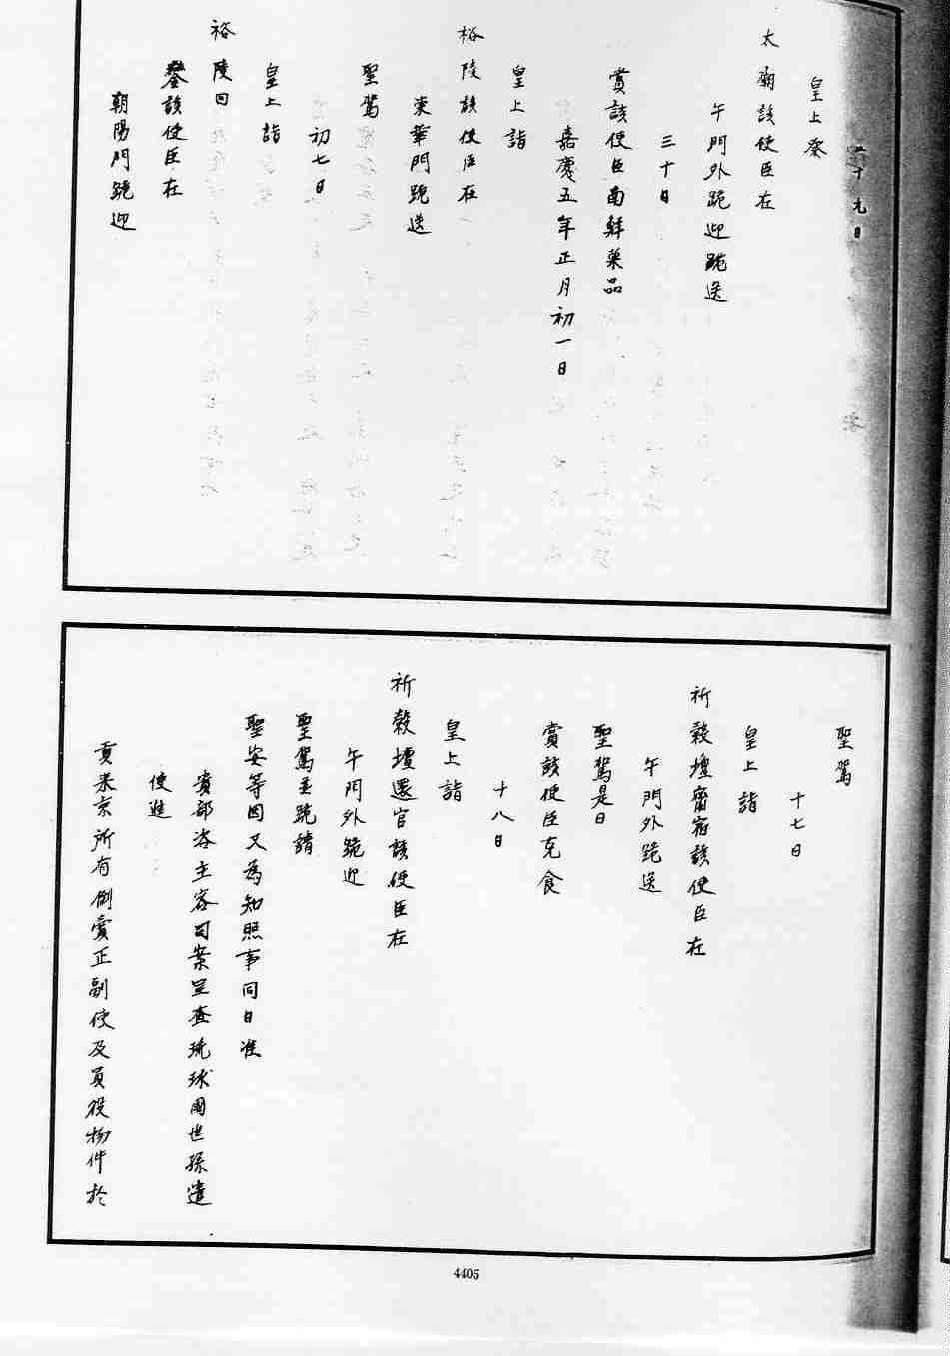 二十九日
皇上祭
太廟該使臣在
午門外跪迎跪送
三十日
賞該使臣南鮮菓品
嘉慶五年正月初一日
皇上詣
裕陵該使臣在
東華門跪送
聖駕
初七日
皇上詣
裕陵回
鑾該使臣在
朝陽門跪迎
聖駕
十七日
皇上詣
祈穀壇齋宿該使臣在
午門外跪送
聖駕是日
賞該使臣克食
十八日
皇上詣
祈穀壇還宮該使臣在
午門外跪迎
聖駕並跪請
聖安等因又為知照事同日准
貴部咨主客司案呈查琉球國世孫遣
使進
貢來京所有例賞正副使及員役物件於
4405